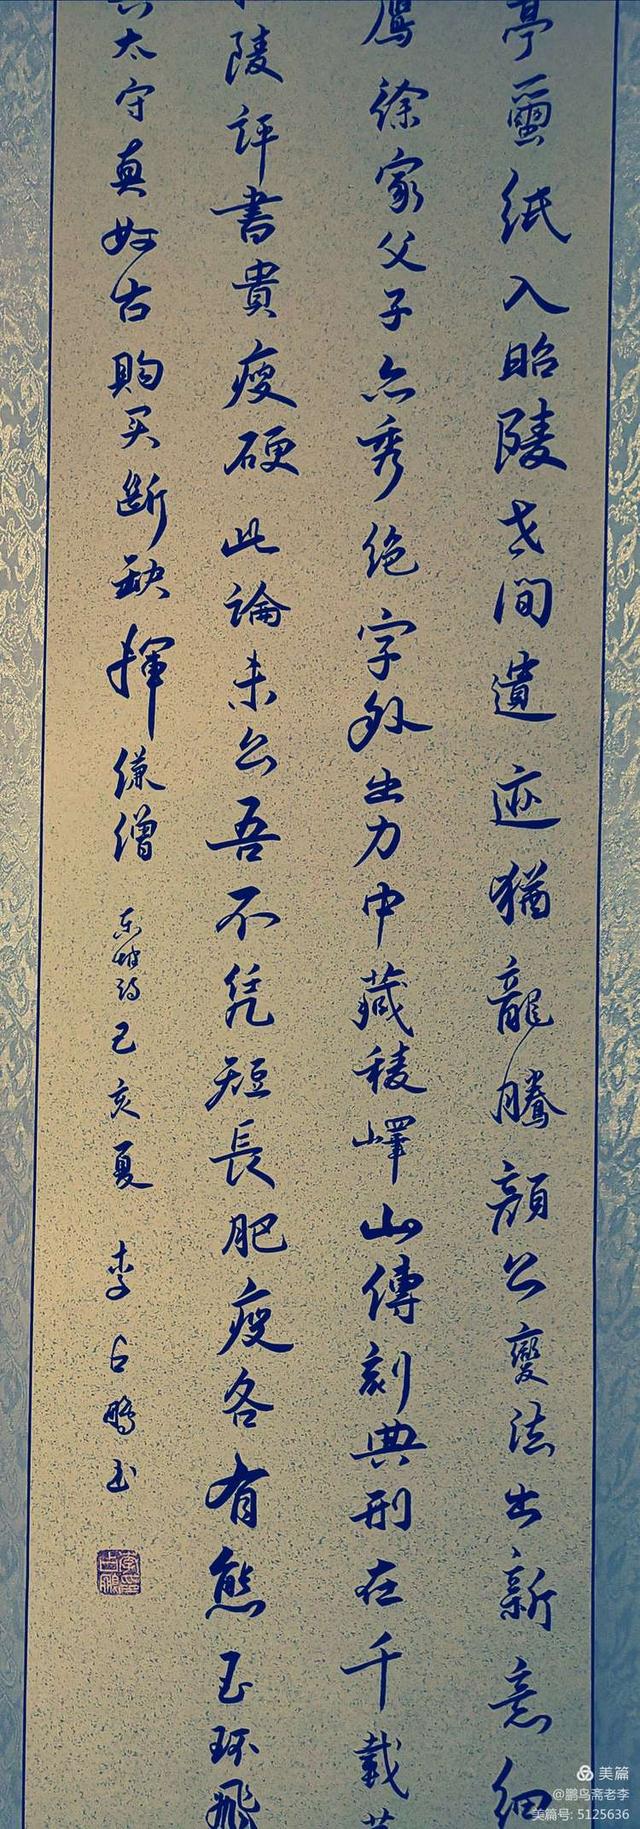 亭茧纸入昭陵世间遗迹猶龍騰顔公變法出新意细
鹰徐家父子亦秀绝字外出力中藏稜嶧山傳刻典刑在千載
陵評書貴瘦硬此論未公吾不凭短長肥瘦各有態玉环飛
太守真好古購买斷缺揮缣僧
東坡詩己亥夏
李占鵬書
李占鵬印
美篇
@鹏鸟斋老李
美篇号: 5125636